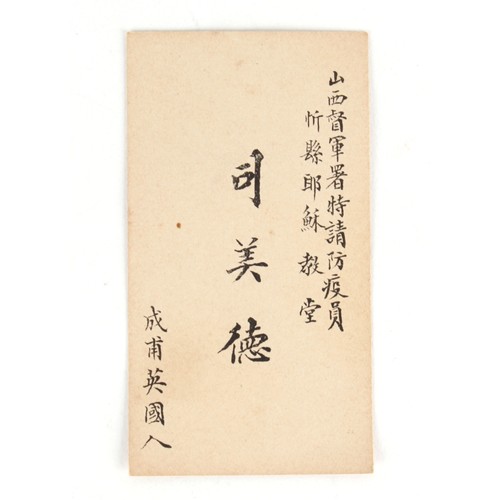 山西督軍署特請防疫員
忻縣耶穌教堂
司美德
成甫英國人